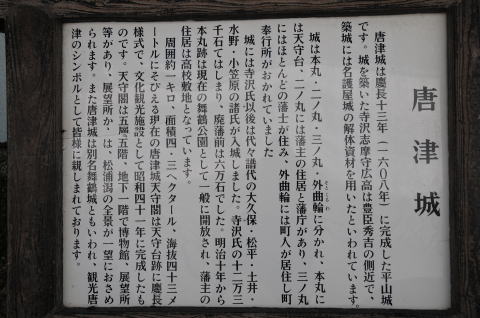 唐津城
唐津城は慶長十三年（一六〇八年）に完成した平山城
です。城を築いた寺沢志摩守広高は豊臣秀吉の側近で、
築城には名護屋城の解体資材を用いたといわれています。
城は本丸・二ノ丸・三ノ丸・外曲輪に分かれ、本丸に
は天守台、二ノ丸には藩主の住居と藩庁があり、三ノ丸
にはほとんどの藩士が住み、外曲輪には町人が居住し町
奉行所がおかれていました
城には寺沢氏以後は代々譜代の大久保・松平・土井・
水野・小笠原の諸氏が入城しました。寺沢氏の十二万三
千石ではじまり、廃藩前は六万石でした。明治十年から
本丸跡は現在の舞鶴公園として一般に開放され、藩主の
住居は高校敷地となっています。
周囲約一キロ、面積四・三ヘクタール、海抜四十三メ
ートルにそびえる現在の唐津城天守閣は天守台跡に慶長
様式で、文化観光施設として昭和四十一年に完成したも
のです。天守閣は五層五階、地下一階で博物館、展望所
等があり、展望所か、は、松浦潟の全景が一望におさめ
られます。また唐津城は別名舞鶴城ともいわれ、観光唐
津のシンボルとして皆様に親しまれております。